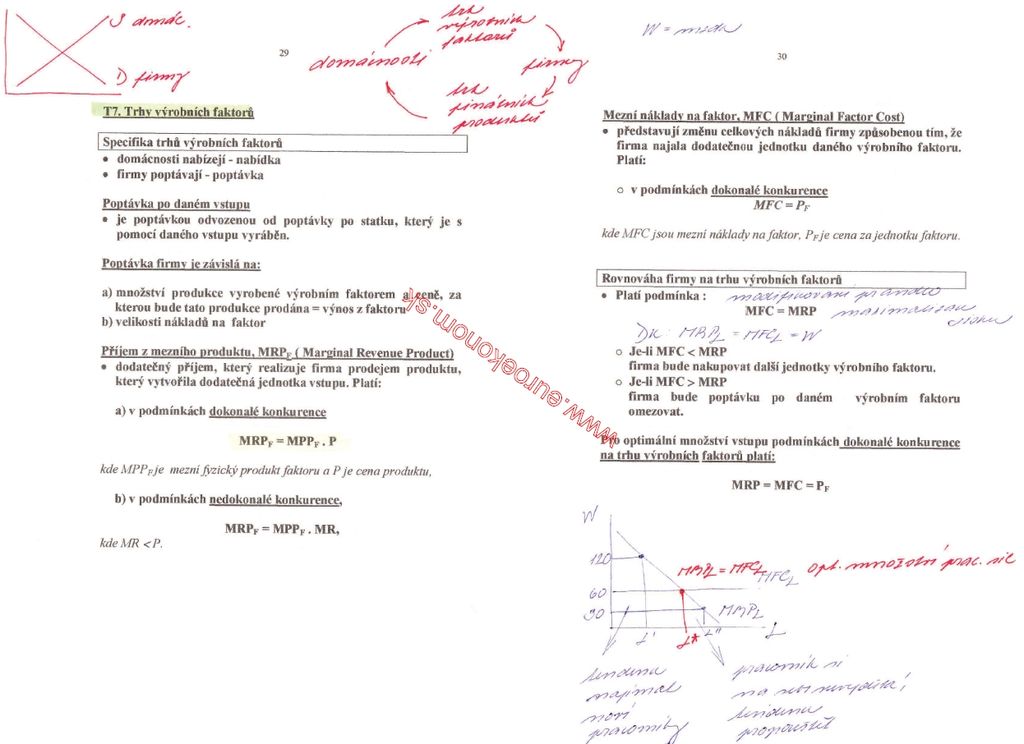 S domác.
D firmy
29
domácnosti
trh
výrobních
faktorů
firmy
trh
finálních
produktů
T7. Trhy výrobních faktorů
Specifika trhů výrobních faktorů
• domácnosti nabízejí - nabídka
• firmy poptávají - poptávka
Poptávka po daném vstupu
• je poptávkou odvozenou od poptávky po statku, který je s
pomocí daného vstupu vyráběn.
Poptávka firmy je závislá na:
a) množství produkce vyrobené výrobním faktorem a ceně, za
kterou bude tato produkce prodána = výnos z faktoru
b) velikosti nákladů na faktor
Příjem z mezního produktu, MRPF ( Marginal Revenue Product)
• dodatečný příjem, který realizuje firma prodejem produktu,
který vytvořila dodatečná jednotka vstupu. Platí:
a) v podmínkách dokonalé konkurence
MRPF = MPPF . P
kde MPPF je mezní fyzický produkt faktoru a P je cena produktu,
b) v podmínkách nedokonalé konkurence,
MRPF = MPPF . MR,
kde MR < P.
www.euroekonom.sk
W = mzda
30
Mezní náklady na faktor, MFC ( Marginal Factor Cost)
• představují změnu celkových nákladů firmy způsobenou tím, že
firma najala dodatečnou jednotku daného výrobního faktoru.
Platí:
o v podmínkách dokonalé konkurence
MFC = PF
kde MFC jsou mezní náklady na faktor, PF je cena za jednotku faktoru.
Rovnováha firmy na trhu výrobních faktorů
• Platí podmínka : modifikované pravidlo
MFC = MRP maximalizace
zisku
DK: MRPL = MFCL = W
o Je-li MFC < MRP
firma bude nakupovat další jednotky výrobního faktoru.
o Je-li MFC > MRP
firma bude poptávku po daném výrobním faktoru
omezovat.
Pro optimální množství vstupu podmínkách dokonalé konkurence
na trhu výrobních faktorů platí:
MRP = MFC = PF
W
120
MRPL = MFCL opt. množství prac. sil
MFCL
60
30
MRPL
L' L* L'' L
tendence
najímat
nové
pracovníky
pracovník si
na sebe nevydělá,
tendence
propouštět